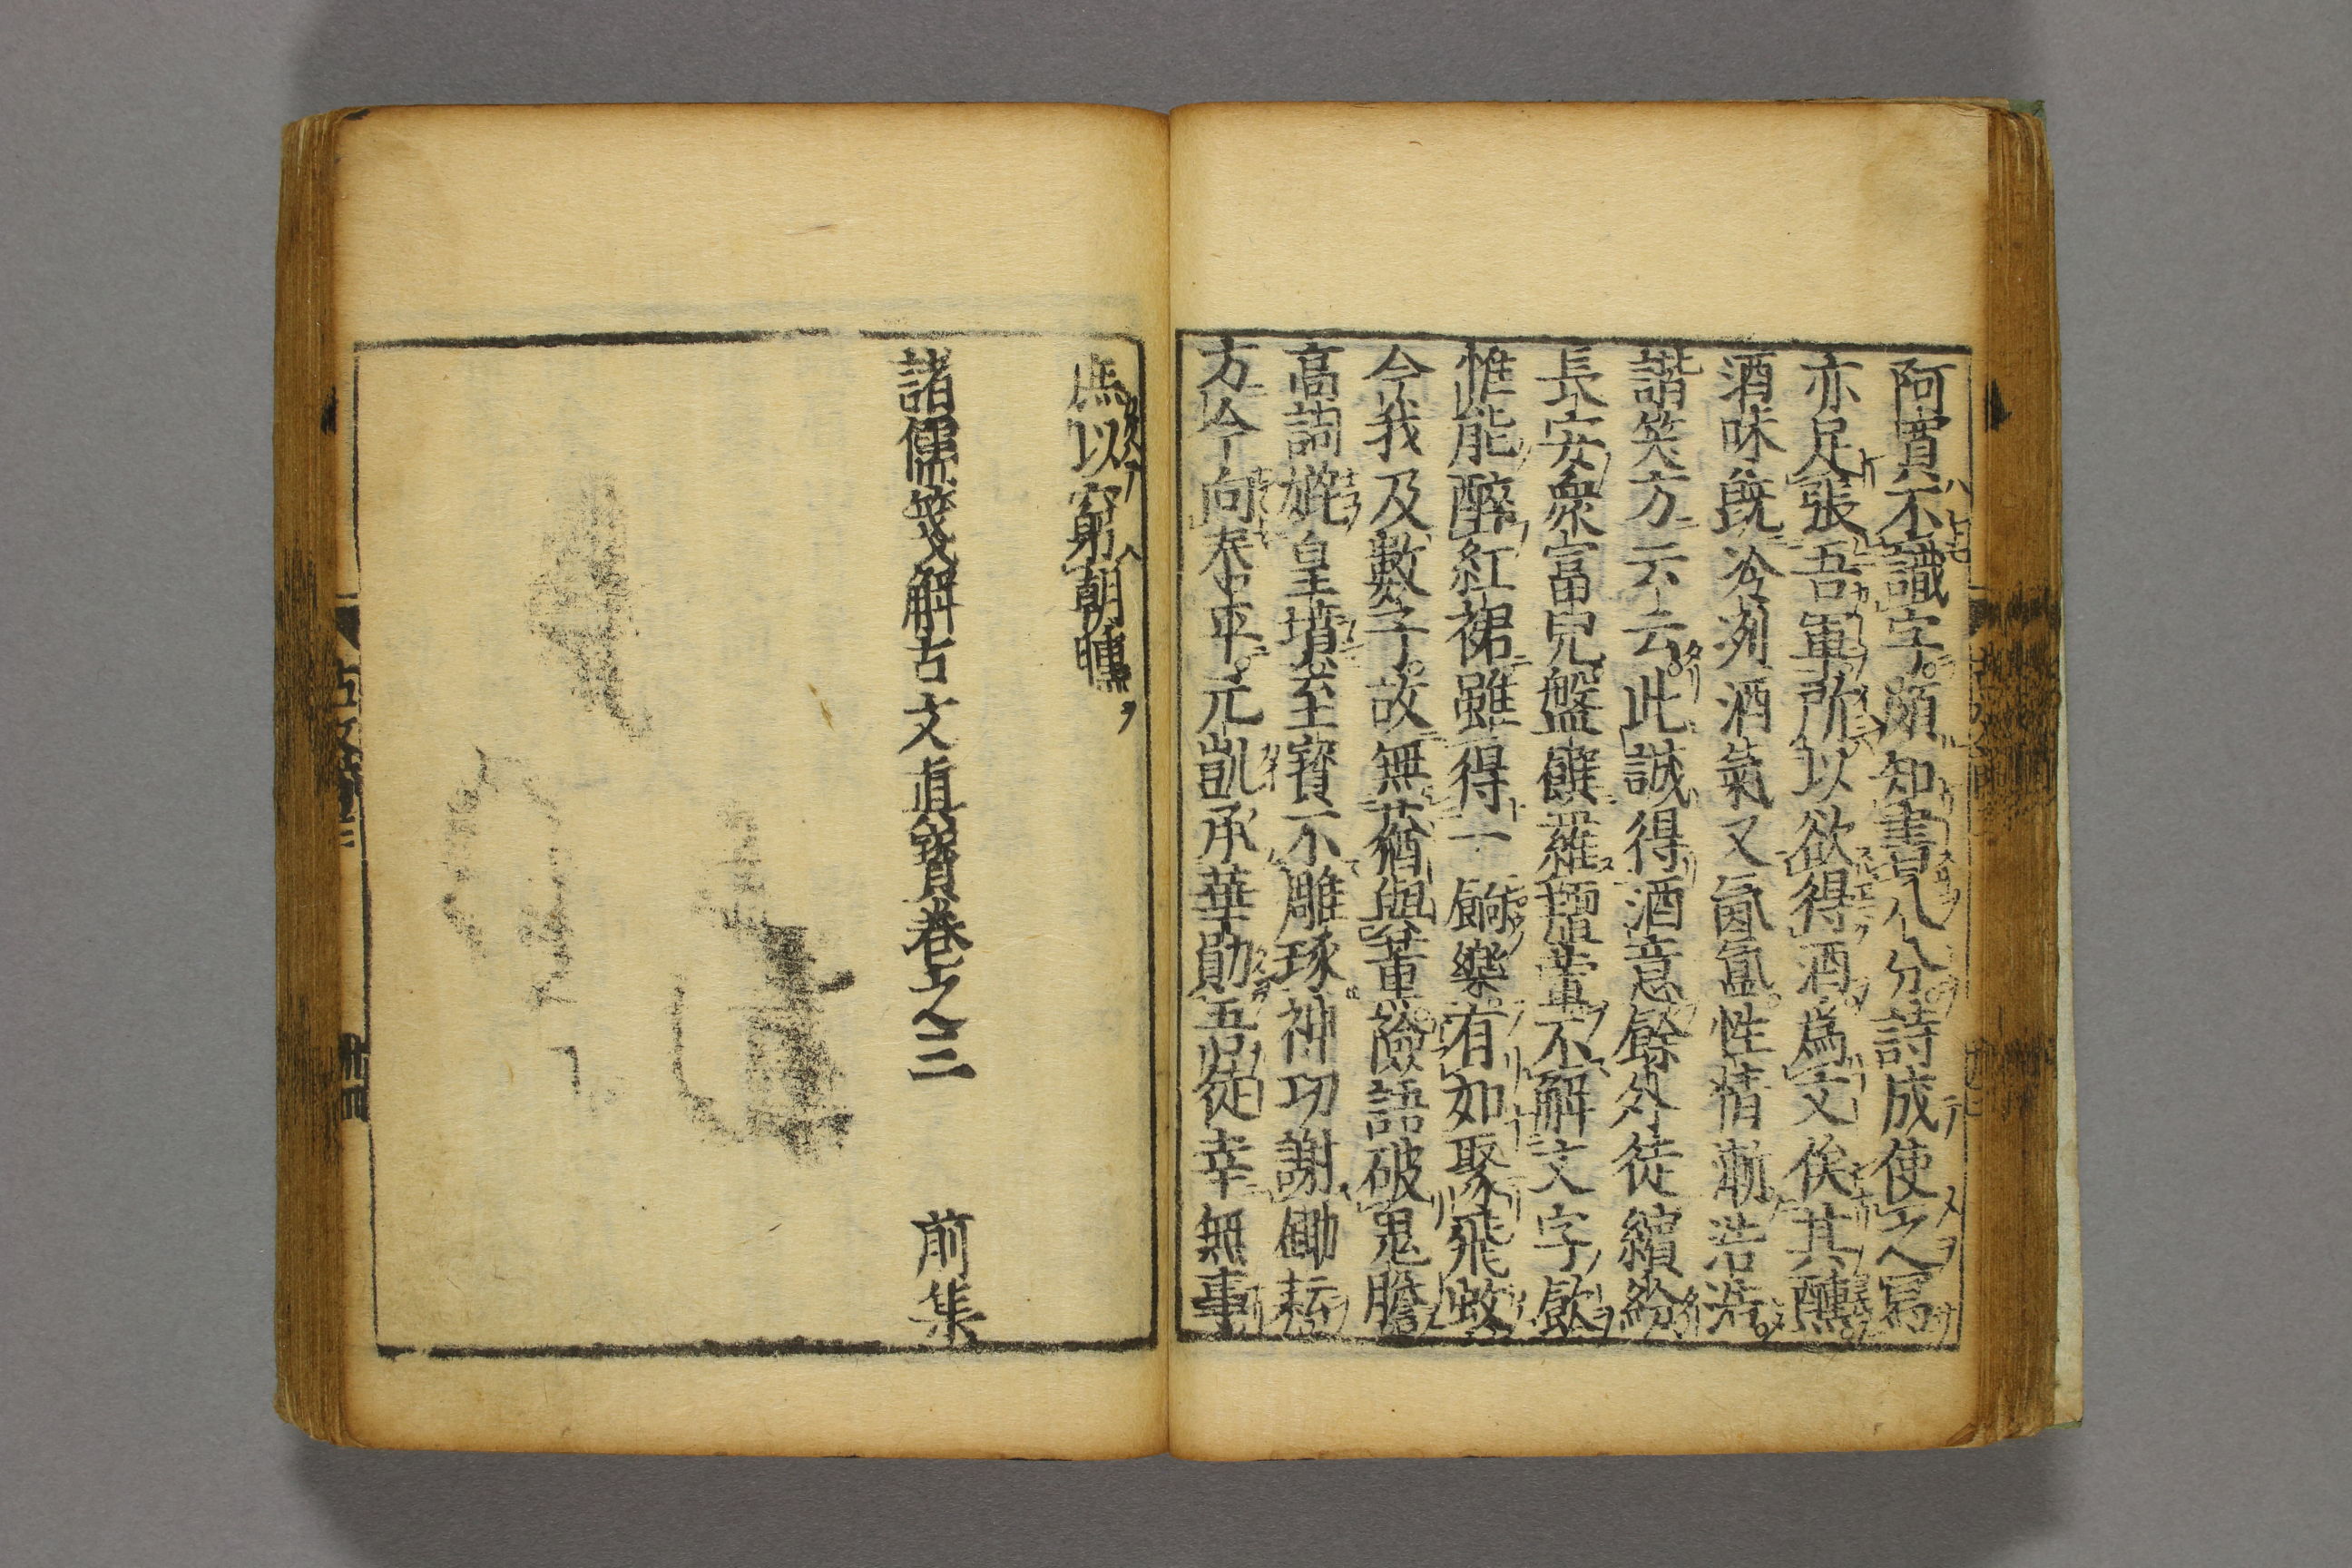 阿買不識字頗知書八分詩成使之寫
亦足張吾軍所以欲得酒爲文俟其醺
酒味旣冷冽酒氣又氤氳性情漸浩浩
諧笑方云云此誠得酒意餘外徒繽紛
長安衆富兒盤饌羅羶葷不解文字飮
惟能醉紅裙雖得一餉樂有如聚飛蚊
今我及數子故無蕕與薰險語破鬼膽
高詞媲皇墳至寶不雕琢神功謝鋤耘
方今向泰平元凱承華勛吾徒幸無事
庶以窮朝曛
諸儒箋解古文眞寶卷之三 前集